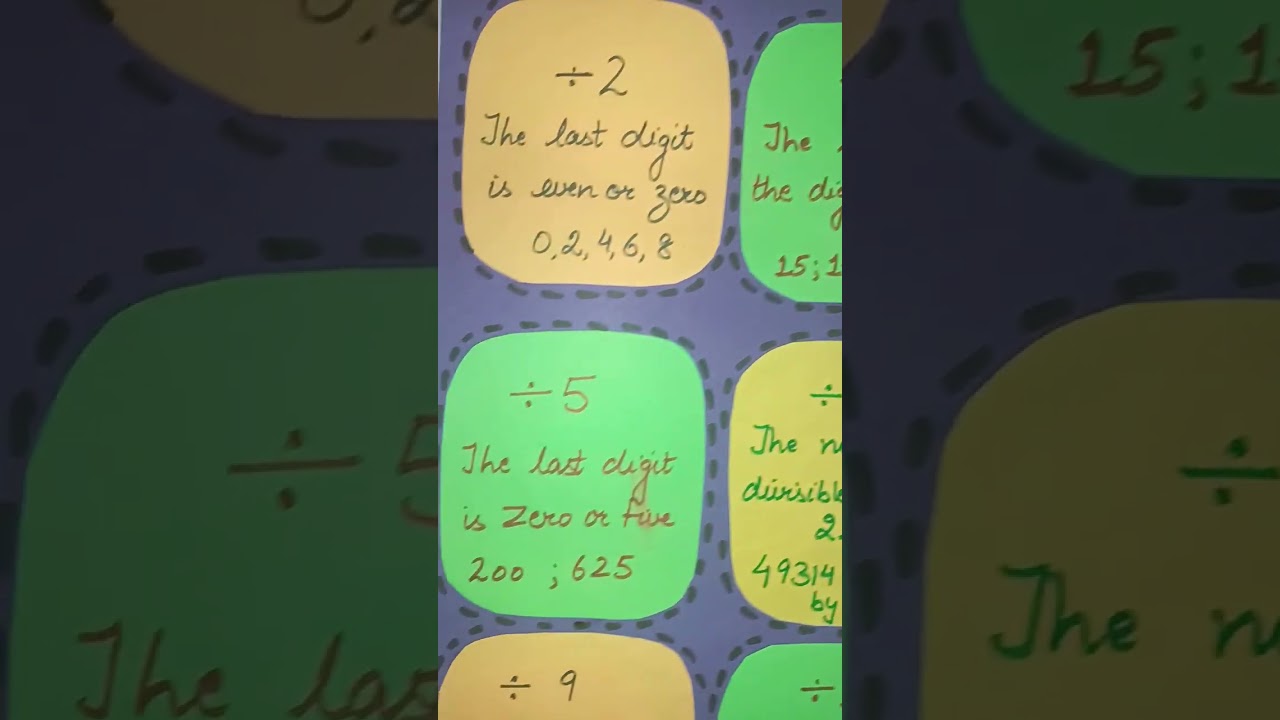 ÷2
The last digit
is even or zero
0,2,4,6,8
The
the dig
15;1
÷5
The last digit
is Zero or five
200 ; 625
÷
The n
divisibl
2
49314
by
÷ 9
÷